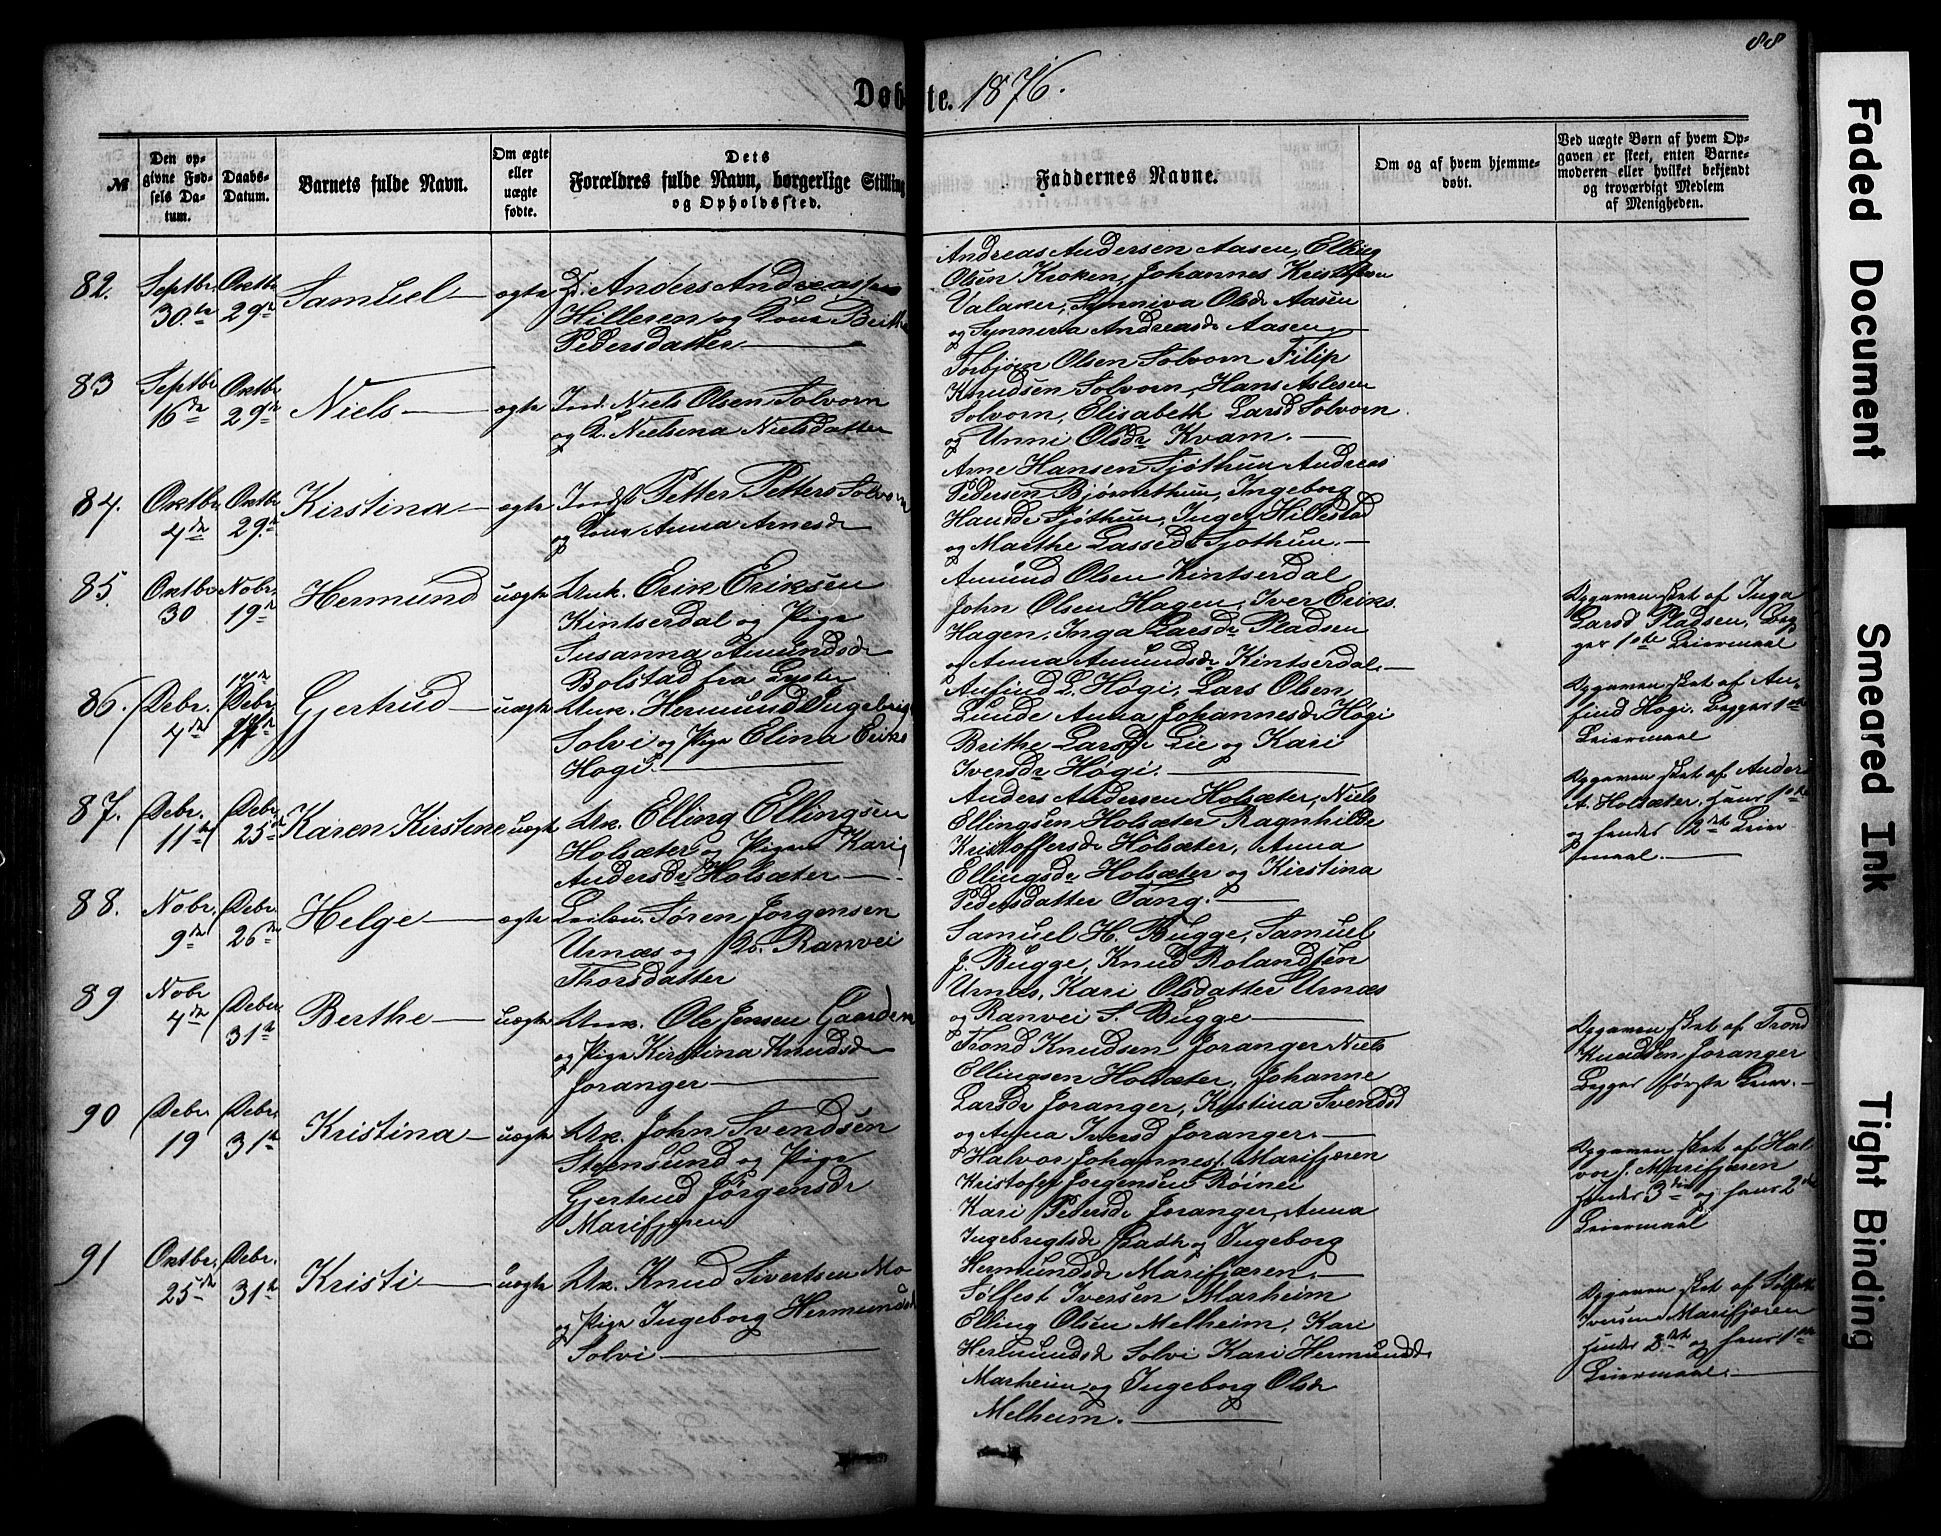 88
Døbte. 1876.
№
Den opgivne Fødsels Datum.
Daabs-Datum.
Barnets fulde Navn.
Om ægte eller uægte fødte.
Dets Forældres fulde Navn, borgerlige Stilling og Opholdssted.
Faddernes Navne.
Om og af hvem hjemmedøbt.
Ved uægte Børn af hvem Opgaven er skeet, enten Barnemoderen eller hvilket bekjendt og troværdigt Medlem af Menigheden.
82. Septbr. 30te Oktbr. 29de Samuel ægte
Anders Andreassen
Hilleren og Kone Brithe
Pedersdatter
Andreas Andersen Aasen, Elling
Olsen Kroken, Johannes Kristofersen
Valaker, Synniva Olsdr Aasen
og Synneva Andreasdr Aasen
83 Septbr 16de Oktbr. 29de Niels ægte
Ind. Niels Olsen Solvorn
og K. Nielsena Nielsdatter
Torbjørn Olsen Solvorn Filip
Knudsen Solvorn, Hans Aslesen
Solvorn, Elisabeth Larsd Solvorn
og Unni Olsdr Kvam.
84. Oktbr. 4de Oktbr. 29de Kirstina ægte
Petter Petters Solvorn
og Kone Anna Arnesdr
Arne Hansen Sjøthun Andreas
Pedersen Bjørnethun, Ingeborg
Hansdr Sjøthun, Inger Hillestad
og Marthe Lassedr Sjøthun.
85. Oktbr 30 Nobr. 19de Hermund uægte
Unk. Erik Eriksen
Kintserdal og Pige
Susanna Amundsdr
Bolstad fra Lyster
Amund Olsen Kintserdal
John Olsen Hagen, Iver Eriks.
Hagen, Inga Larsdr Pladsen
og Anna Amundsdr Kintserdal.
Opgaven sket af Inga
Larsd Pladsen, Beg
ges 1ste Leiermaal
86. Debr. 4de 17de Debr. Gjertrud uægte
Unk. Hermund Ingebrigts
Solvi og Pige Elina Eriks
Høgi.
Anfind L. Høgi, Lars Olsen
Lunde Anna Johannesdr Høgi
Brithe Larsdr Lie og Kari
Iversdr Høgi.
Opgaven sket af An-
find Høgi. Begges 1ste
Leiermaal
87. Debr. 11te Debr. 25de Karen Kirstine uægte
Uk. Elling Ellingsen
Holsæter og Pigen Kari
Andersdr Holsæter
Anders Andersen Holsæter, Niels
Ellingsen Holsæter Ragnhilde
Kristoffersdr Holsæter, Anna
Ellingsdr Holsæter og Kirstina
Pedersdatter Tang.
Opgaven sket af Anders
A. Holsæter. Hans 1ste
og hendes 2det Leier
maal.
88. Nobr. 9de Debr. 26de Helge ægte
Søren Jørgensen
Urnæs og Ranvei
Thorsdatter
Samuel H. Bugge, Samuel
J. Bugge, Knud Rolandsen
Urnæs, Kari Olsdatter Urnæs
og Ranvei S. Bugge
89 Nobr 4de Debr. 31te Berthe uægte
Unk. Ole Jensen Gaarden
og Pige Kirstina Knudsdr
Joranger
Trond Knudsen Joranger Niels
Ellingsen Holsæter, Johanne
Larsdr Joranger, Kristina Svendsd
og Anna Iversd Joranger.
Opgaven sket af Trond
Knudsen Joranger
Begges første Leier.
90 Debr. 19 Debr. 31te Kristina uægte
Uk. John Svendsen
Steensund og Pige
Gjertrud Jørgensdr
Marifjøren
Halvor Johannes. Marifjæren
Kristofer Jørgensen Røinei
Kari Pedersdr Joranger, Anna
Ingebrigtsdr Badh og Ingeborg
Hermundsdr Marifjæren.
Opgaven sket af Hal-
vor J. Marifjæren
hendes 3die og hans 2det
Leiermaal
91 Oktbr. 25de Debr. 31te Kristi uægte
Uk. Knud Sivertsen Mo
og Pige Ingeborg Hermundsd
Solvi
Sølfest Iversen Marheim
Elling Olsen Melheim, Kari
Hermundsd Solvi Kari Hermundsd
Marheim og Ingeborg Olsdr
Melheim.
Opgaven sket af Sølfest
Iversen Marifjøren
hendes 2det og hans 1ste
Leiermaal.
Faded Document
Smeared Ink
Tight Binding